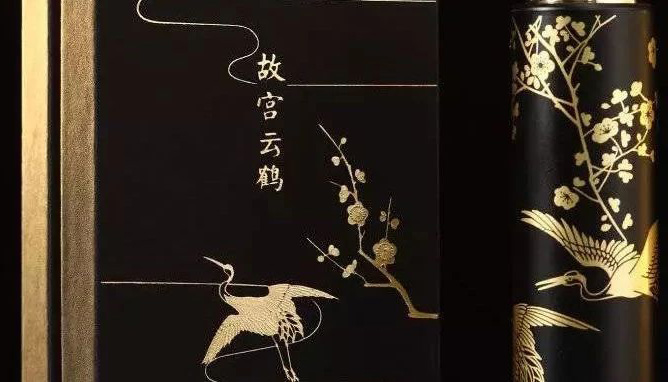 故宫云鹤